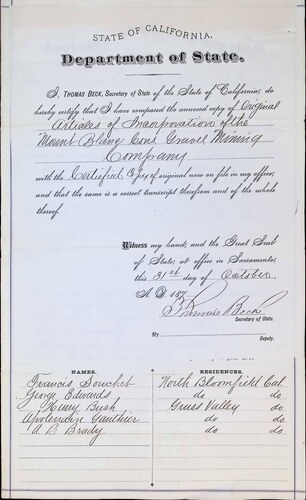 STATE OF CALIFORNIA.
Department of State.
I, THOMAS BECK, Secretary of State of the State of California, do
hereby certify that I have compared the annexed copy of Original
Articles of Incorporation of the
Mount Blanc Cons Gravel Mining
Company
with the Certified Copy of original now on file in my office;
and that the same is a correct transcript therefrom and of the whole
thereof.
Witness my hand, and the Great Seal
of State, at office in Sacramento,
this 31st day of October
A. D. 187
Thomas Beck
Secretary of State.
By
Deputy.
NAMES. RESIDENCES.
Francis Souchet North Bloomfield Cal.
George Edwards do do
Henry Bush Grass Valley do
Apolendin Gauthier do do
A B Brady do do